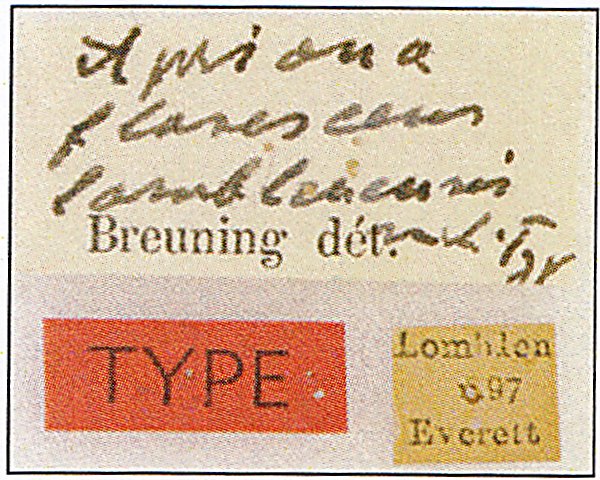 Apriona
flavescens
lomblenensis
Breuning dét.
TYPE
Lomblen
97
Everett